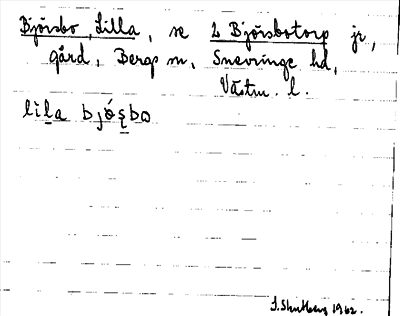 Björsbo, Lilla, se L Björsbotorp jr,
gård, Bergs sn, Snevringe hd,
Västm. l.
lìḷa bjó̀ṣbo
1962.